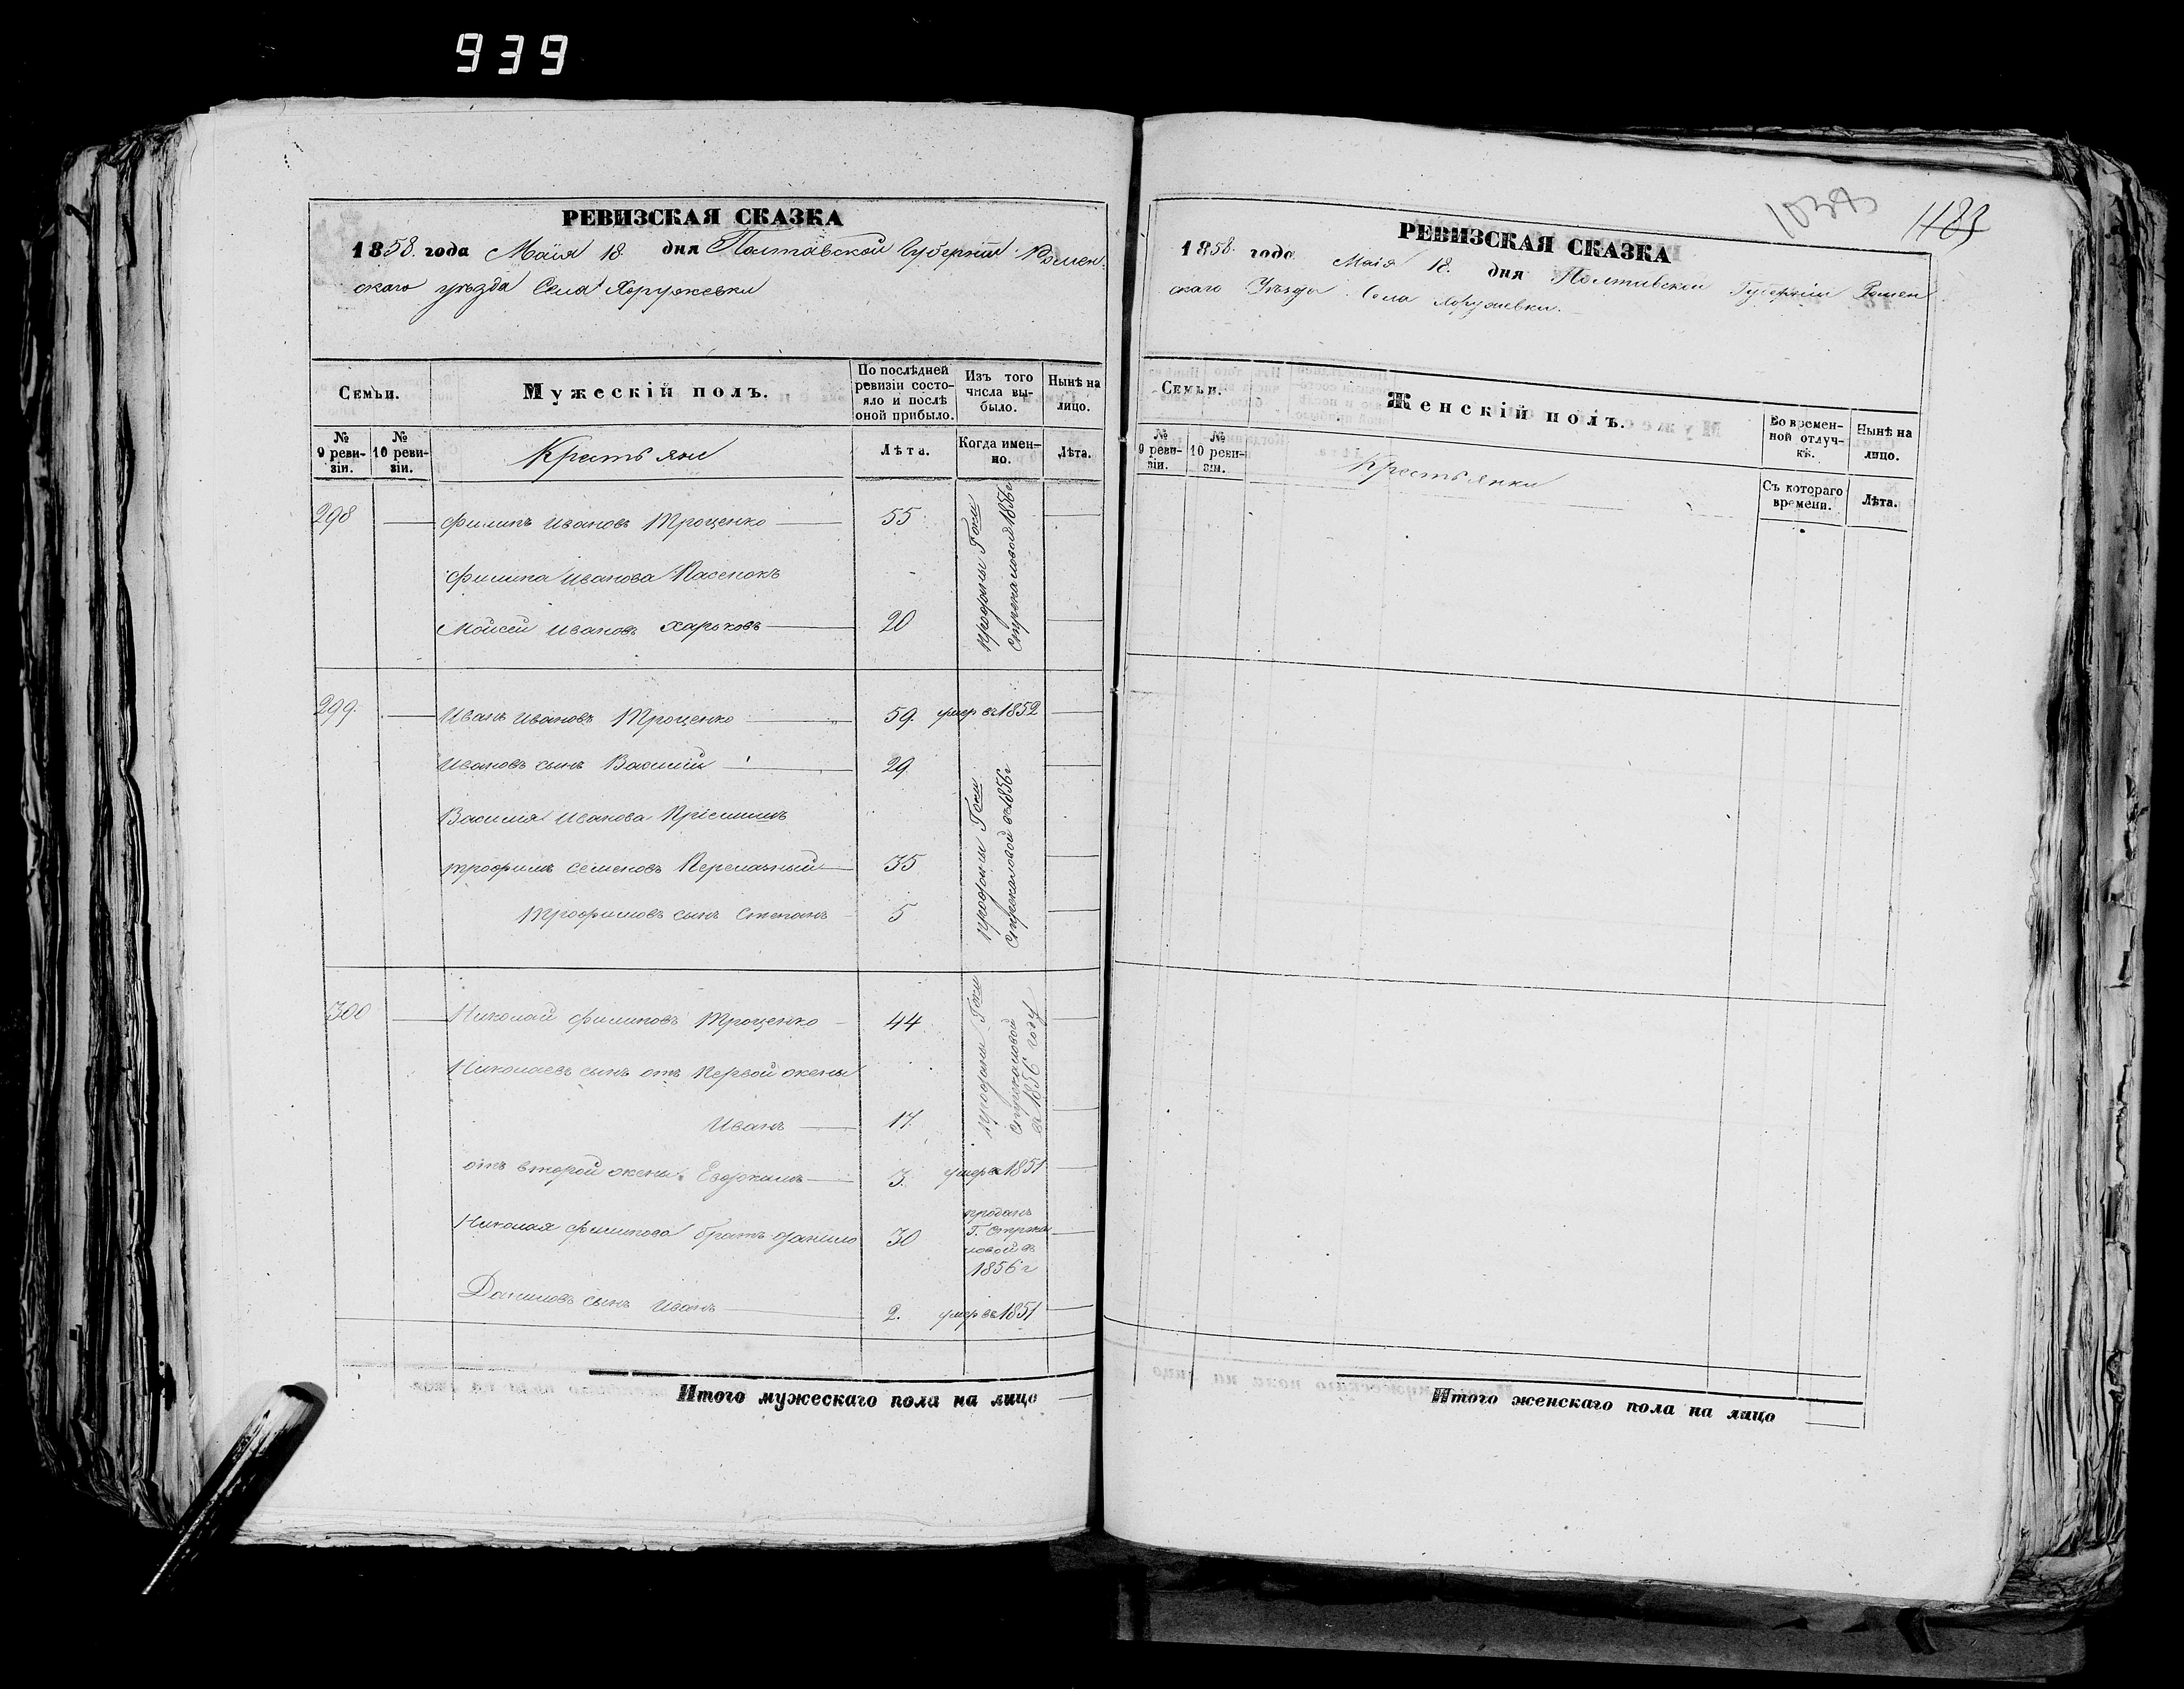 939
РЕВИЗСКАЯ СКАЗКА
1858. года Маія 18. дня Полтавской Губерніи Ромен-
скаго уѣзда Села Хоружевки
Семьи.
Мужескій полъ.
По послѣдней ревизіи состояло и послѣ оной прибыло.
Изъ того числа выбыло.
Нынѣ на лицо.
№ 9 ревизіи.
№ 10 ревизіи.
Крестьяне
Лѣта.
Когда именно.
Лѣта.
298 Филипъ Ивановъ Троценко 55
Филипа Иванова Пасенокъ
Моисей Ивановъ Харьковъ 20
проданы Г Стрекаловой 1856 г
299. Иванъ Ивановъ Троценко 59. умер въ 1852
Ивановъ сынъ Василий 29.
Василия Иванова Пріемышъ
Трофимъ Семеновъ 35
Трофимовъ сынъ Степанъ 5
проданы Г Стрекаловой въ 1856 г
300 Николай Филиповъ Троценко 44
Николаевъ сынъ отъ Первой жены
Иванъ 17.
проданы Г Стрекаловой въ 1856 году
отъ второй жены Евдокимъ 3. умер въ 1851
Николая Филипова братъ Данило 30 проданъ Г. Стрекаловой въ 1856 г
Даниловъ сынъ Иванъ 2. умер въ 1851
Итого мужескаго пола на лицо
1183
РЕВИЗСКАЯ СКАЗКА
1858. года Маія 18. дня Полтавской Губерніи Ромен
скаго Уѣзда Села Хоружевки.
Семьи.
Женскій полъ.
Во временной отлучкѣ.
Нынѣ на лицо.
№ 9 ревизіи.
№ 10 ревизіи.
Крестьянки
Съ котораго времени.
Лѣта.
Итого женскаго пола на лицо